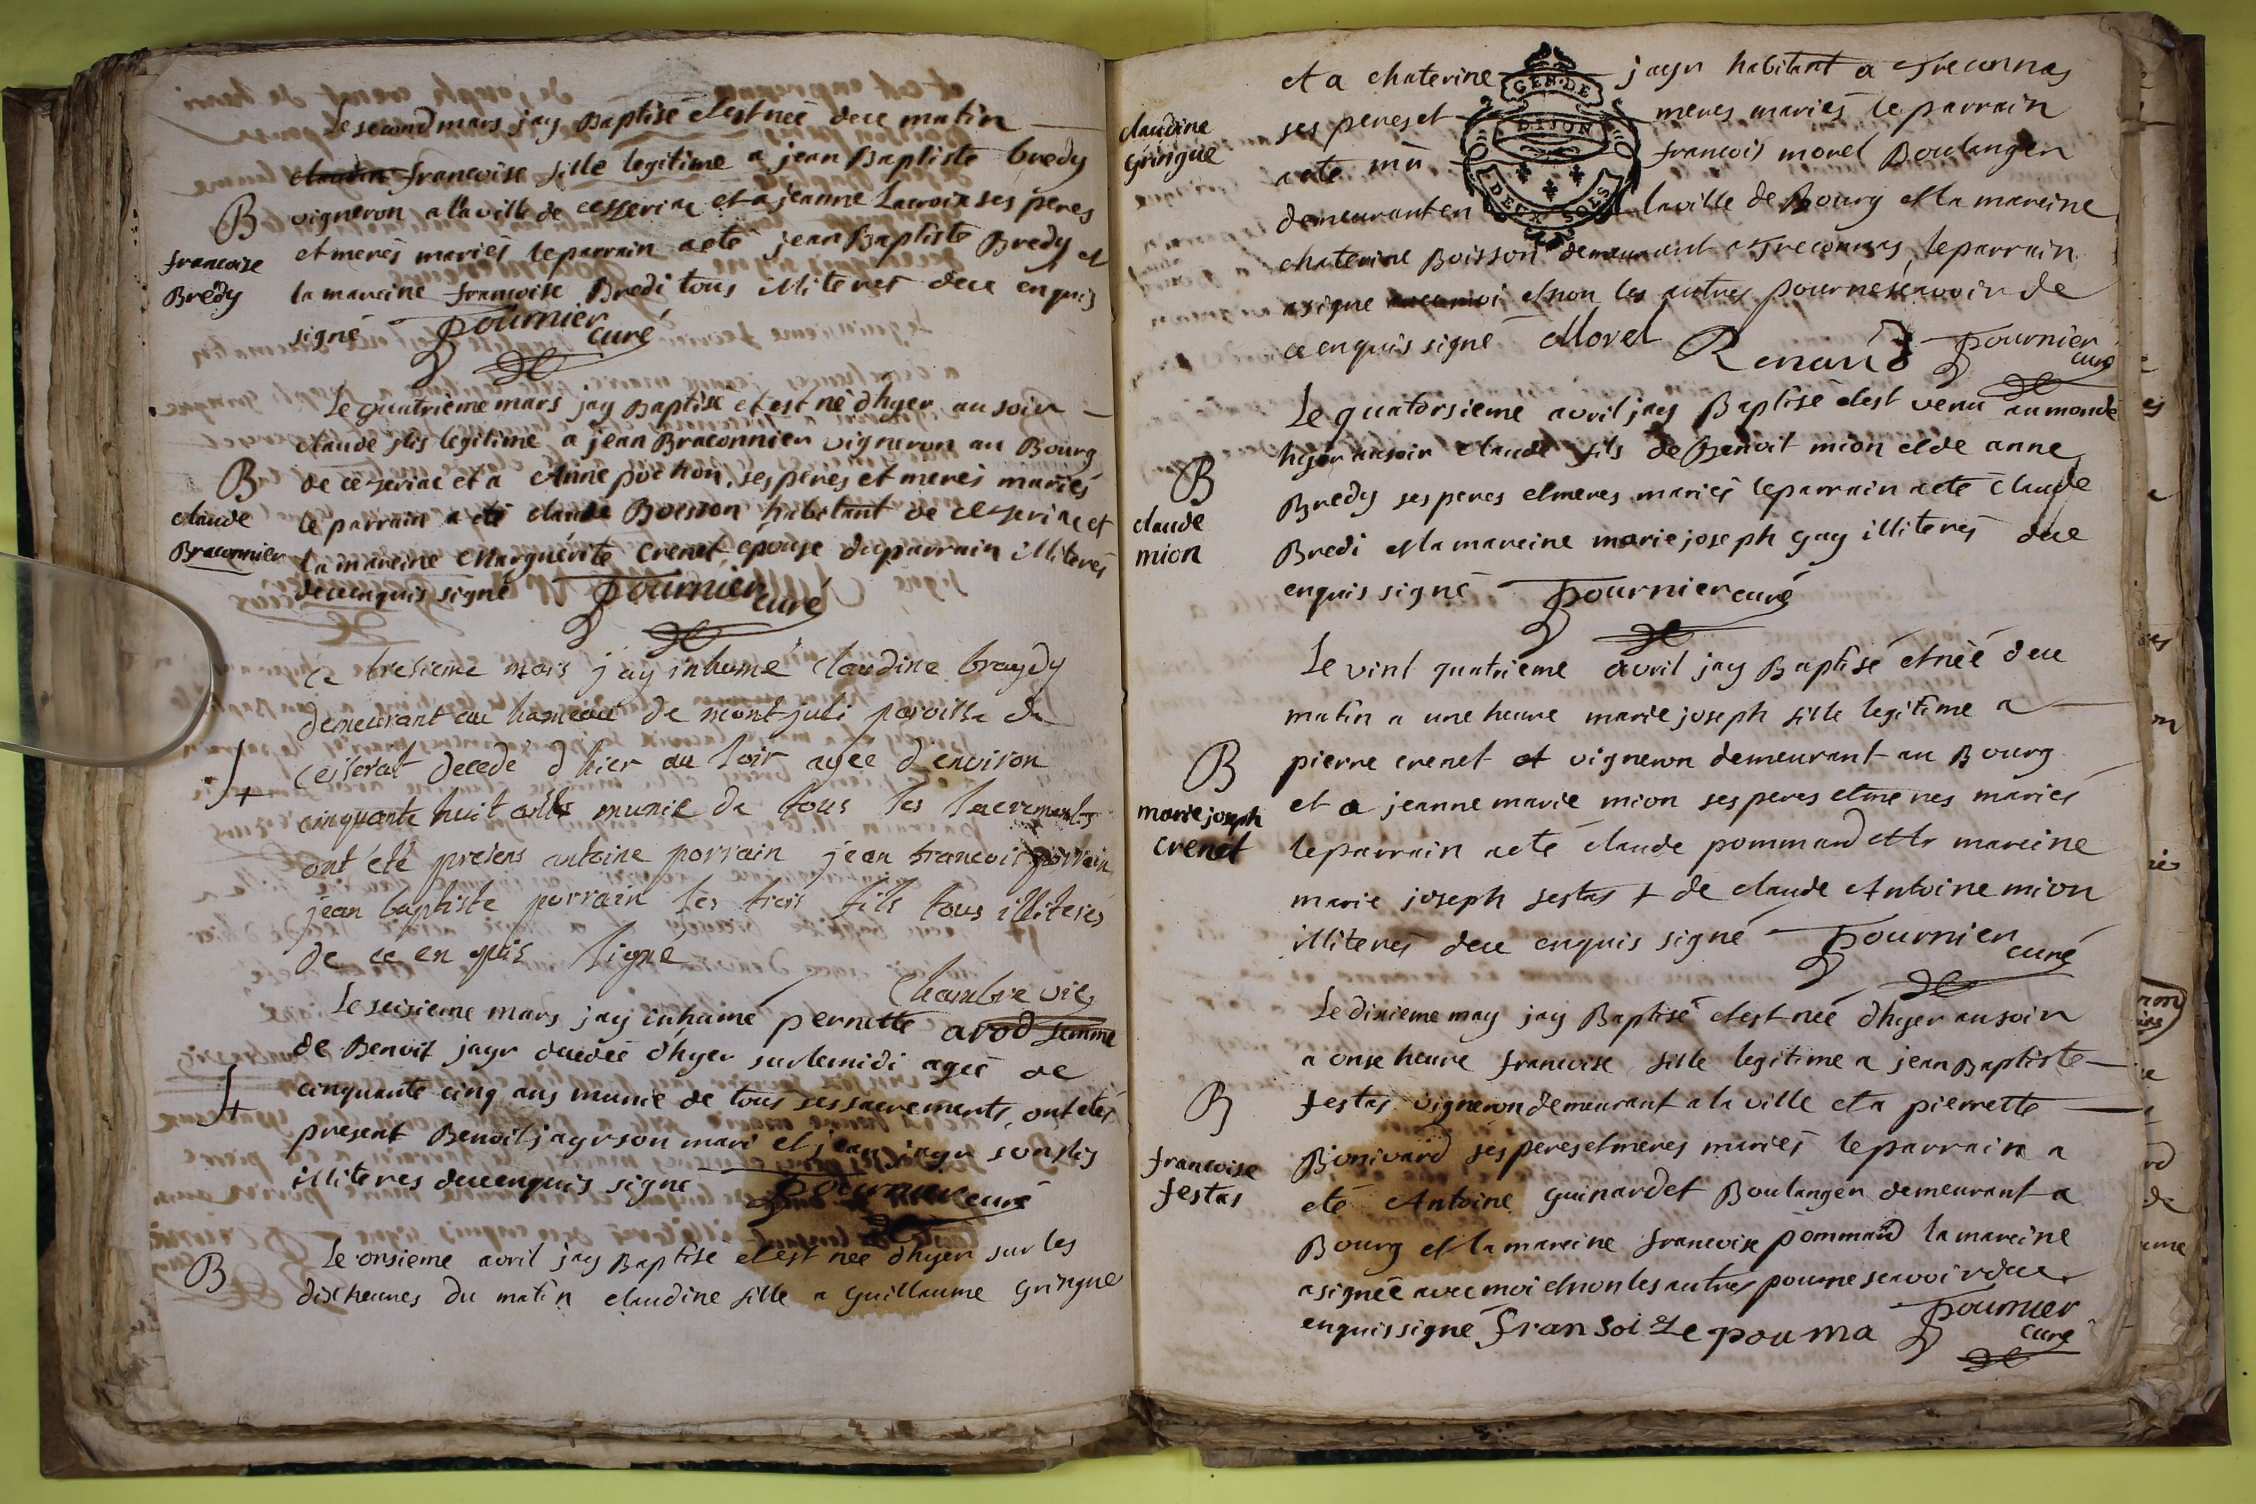 Le second mars jay Baptisé et est née de ce matin
francoise fille legitime a jean Baptiste bredy
B vigneron a la ville de cesseriac et a jeanne Lacroix ses peres
et merês mariês le parrain a eté jean Baptiste Bredy et
francoise
Bredy
la mareine francoise Bredi tous illiterés de ce enquis
signé fournier curé
Le quatrième mars jay Baptisé et est né d'hyer au soir
claude fils legitime a jean Braconnier vigneron au Bourg
B de ceseriac et a Anne pochon, ses peres et merés mariés
claude
Braconnier
le parrain a eté claude Boisson habitant de ceseriac et
la mareine Marguérite Crenet epouse du parrain illiterés
de ce enquis signé fournier curé
Le tresieme mars j'ay inhumé claudine braydy
demeurant au hameau de mont juli paroisse de
decedé d'hier au soir agée d'environ
cinquante huit ans munie de tous les sacrements
ont été presens antoine porrain jean francois porrain
jean baptiste porrain ses trois fils tous illiterés
de ce en quis signé
Le seisieme mars jay inhumé pernette avod femme
de Benoit jayr decedée d'hyer sur le midi agée de
cinquante cinq ans munie de tous ses sacrements, ont etés
present Benoit jayr son mari et jean jayr son fils
illiteres de ce enquis signé fournier curé
B Le onsieme avril jay Baptisé et est née d'hyer sur les
dix heures du matin claudine fille a Guillaume Gringue
claudine
Gringue
et a chaterine jayr habitant a Treconnas
ses peres et meres mariés le parrain
a eté francois morel Boulanger
demeurant en la ville de Bourg et la mareine
chaterine Boisson demeurant a Treconnas, le parrain
a signe et non les autres pour ne scavoir de
ce enquis signé Morel Renaud fournier curé
Le quatorsieme avril jay Baptisé et est venu au monde
hyer au soir claude fils de Benoit mion et de anne
B
claude
mion
Bredy ses peres et meres mariés le parrain a eté claude
Bredi et la mareine marie joseph gay illiterés de ce
enquis signé fournier curé
Le vint quatrième avril jay Baptisé et née de ce
matin a une heure marie joseph fille legitime a
B
marie joseph
crenet
pierre crenet et vigneron demeurant au Bourg
et a jeanne marie mion ses peres et meres mariés
le parrain a eté claude pommard et la mareine
marie joseph festas + de claude Antoine mion
illiterés de ce enquis signé fournier curé
Le dixieme may jay Baptisé et est née d'hyer au soir
a onse heure francoise fille legitime a jean Baptiste
B
francoise
festas
festas vigneron demeurant a la ville et a pierrette
Bonivard ses peres et meres mariés le parrain a
eté Antoine Guinardet Boulanger demeurant a
Bourg et la mareine francoise pommard la mareine
a signée avec moi et non les autres pour ne scavoir de ce
enquis signé franSoiZe pouma fournier curé
GEN. DE
DIJON
DEUX SOLS